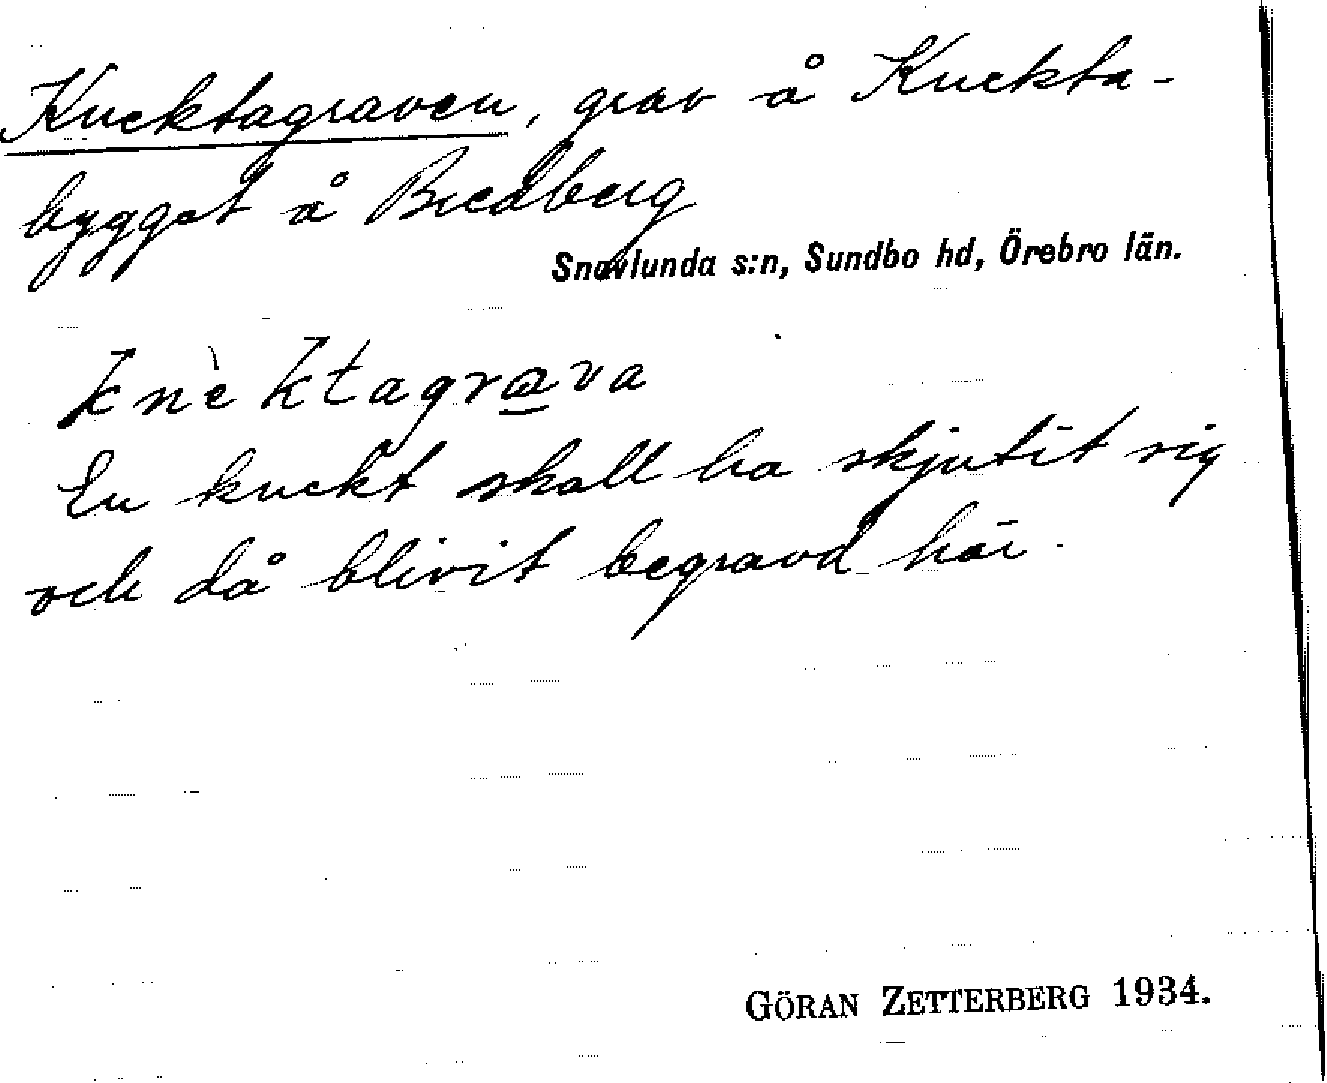 Knektagraven, grav å Knekta-
bygget å Bredberg
Snavlunda s:n, Sundbo hd, Örebro län.
knèktagrava
En knekt skall ha skjutit sig
och då blivit begravd här.
GÖRAN ZETTERBERG 1934.